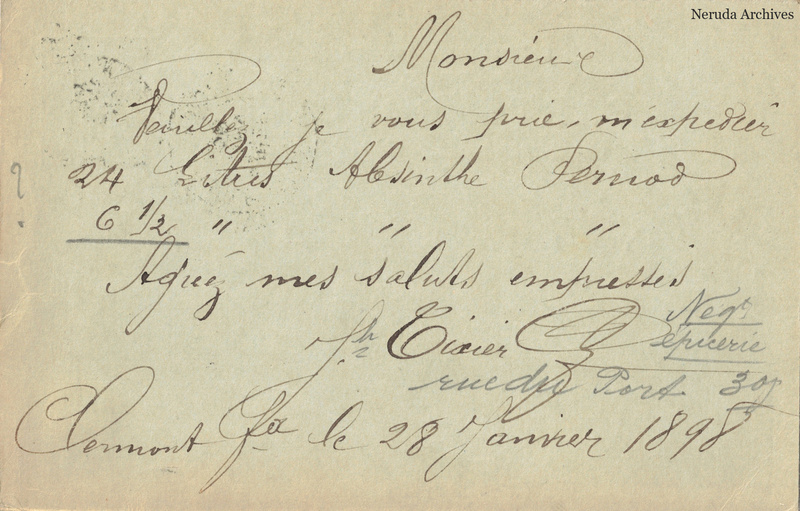 Neruda Archives
Monsieur
Veuillez je vous prie, m'expedier
24 Litres Absinthe Pernod
6 1/2 " " "
?
Agréez mes saluts empressés
Jh Tixier
Negt
épicerie
rue du Port 30
Clermont Fd le 28 Janvier 1898